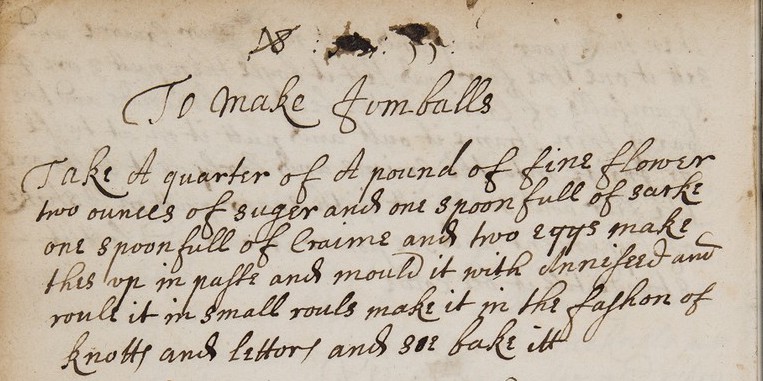 18
To make Jumballs
Take A quarter of A pound of fine flower
two ounces of suger and one spoonfull of sacke
one spoonfull of Craime and two eggs make
this up in paste and mould it with Anniseed and
roule it in small rouls make it in the fashon of
knotts and lettors and soe bake itt